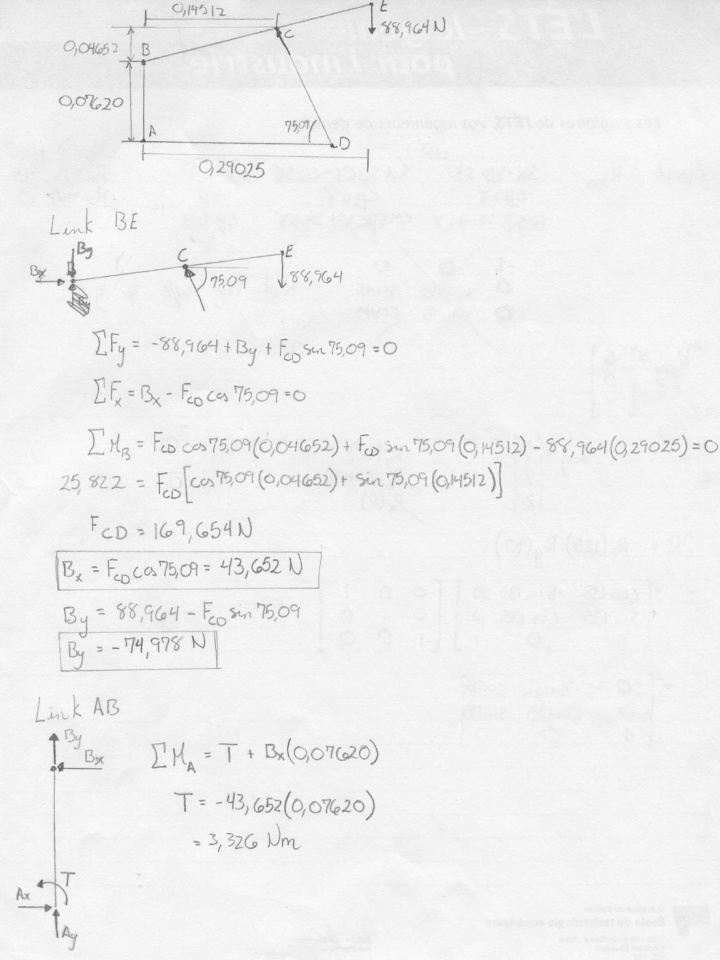 0,14512
E
C
88,964 N
0,04652
B
0,07620
A
75,09
D
0,29025
Link BE
By
Bx
C
E
75,09
88,964
ΣFy = -88,964 + By + F_CD sin 75,09 = 0
ΣFx = Bx - F_CD cos 75,09 = 0
ΣM_B = F_CD cos 75,09 (0,04652) + F_CD sin 75,09 (0,14512) - 88,964 (0,29025) = 0
25,822 = F_CD [cos 75,09 (0,04652) + sin 75,09 (0,14512)]
F_CD = 169,654 N
Bx = F_CD cos 75,09 = 43,652 N
By = 88,964 - F_CD sin 75,09
By = -74,978 N
Link AB
By
Bx
ΣM_A = T + Bx (0,07620)
T = -43,652 (0,07620)
= 3,326 Nm
T
Ax
Ay